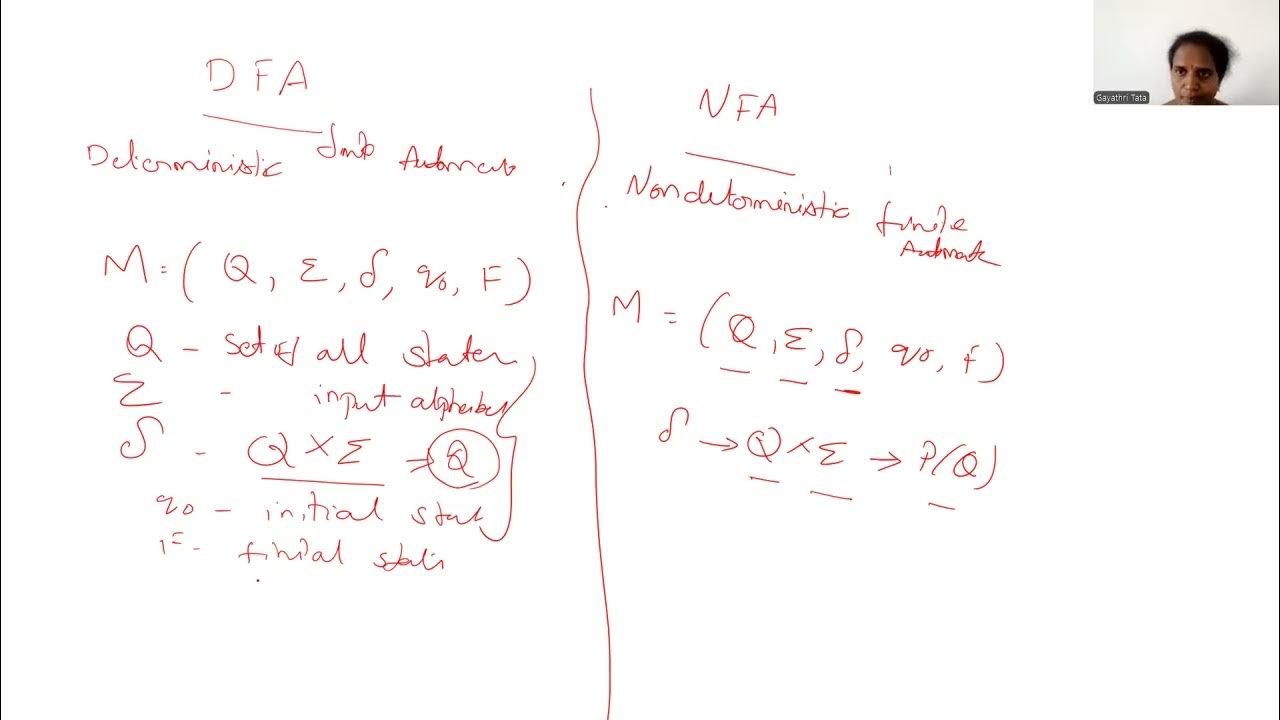 DFA
Deterministic finite Automata
M = ( Q, Σ, δ, q0, F )
Q - Set of all states
Σ - input alphabet
δ - Q × Σ → Q
q0 - initial state
F - finial state
NFA
Nondeterministic finite
Automata
M = ( Q, Σ, δ, q0, F )
δ → Q × Σ → P(Q)
Gayathri Tata